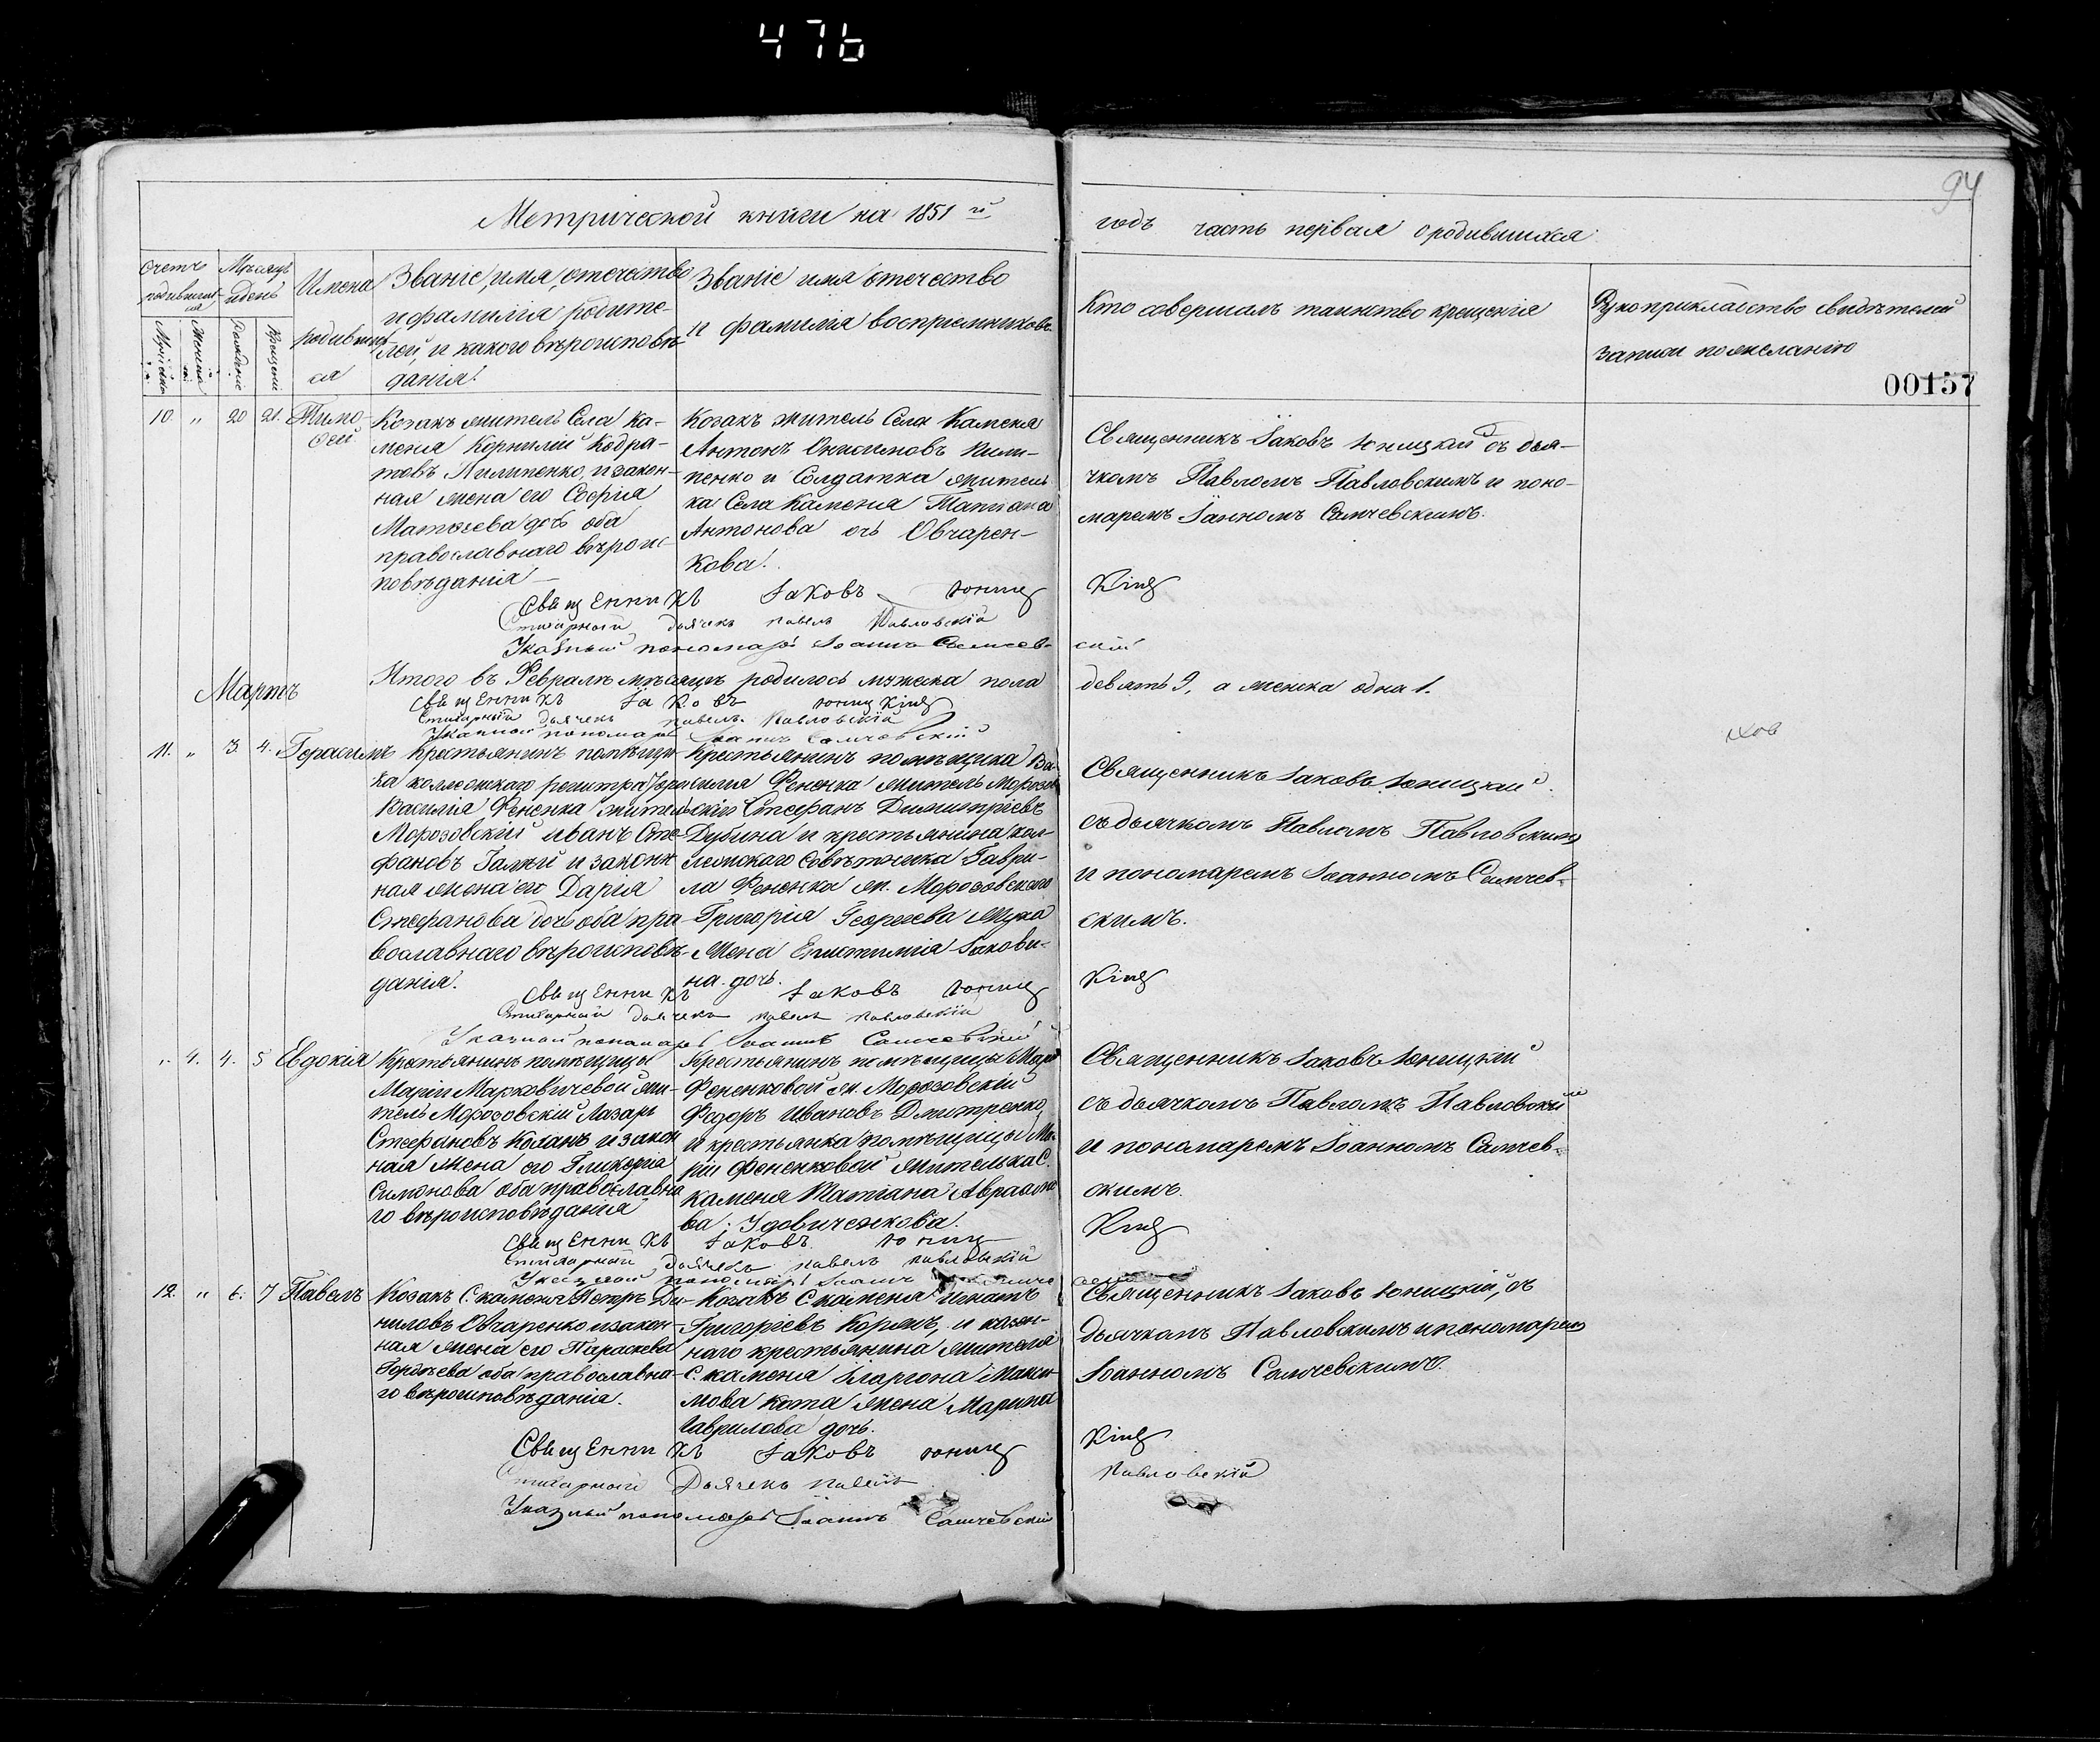 476
94
Метрической книги на 1851 й
годъ часть первая о родившихся
00157
Счетъ родившихся
Мужеска
Женска
Мѣсяцъ и день
Рожденія
Крещенія
Имена родившихся
Званіе, имя, отечество
и фамилія родите-
лей, и какого вѣроисповѣ-
данія.
Званіе имя отечество
и фамилія воспріемниковъ
Кто совершалъ таинство крещенія
Рукоприкладство свидѣтелей
записи по желанію
10. " 20 21. Тимо-
фей
Козакъ житель Села Ка-
меня Корнилій Кодра-
товъ Пилипенко, и закон-
ная жена его Софія
Матфѣева дочь оба
православнаго вѣроис-
повѣданія
Козакъ житель Села Каменя
Антонъ Онисимовъ Пили-
пенко и Солдатка житель
ка Села Каменя Татіана
Антонова дочь Овчарен-
кова.
Священникъ Іаковъ Юницкій съ дья-
чкомъ Павломъ Павловскимъ и поно-
маремъ Іоанномъ Самчевскимъ.
Священникъ Іаковъ Юниц
кій
Стихарный дьячекъ Павелъ Павловскій
Указный пономарь Іоаннъ Самчев-
скій
Итого въ Февралѣ мѣсяцѣ родилось мужеска пола
девять 9, а женска одна 1.
Священникъ Іаковъ Юницкій
Стихарный дьячекъ Павелъ Павловскій
Указный пономарь Іоаннъ Самчевскій
Мартъ
11. " 3. 4. Герасимъ
Крестьянинъ помѣщи-
ка коллежскаго регистратора
Василія Фененка житель
Морозовскій Иванъ Сте-
фановъ и закон-
ная жена его Дарія
Стефанова дочь оба пра-
вославнаго вѣроисповѣ-
данія.
Крестьянинъ помѣщика Ва-
силія Фененка житель Морозов
скій Стефанъ Димитріевъ
Дубина и крестьянина кол-
лежскаго Совѣтника Гаври-
ла Фененка ж. Морозовскаго
Григорія Георгіева
жена Епистимія Іакови-
на дочь.
Священникъ Іаковъ Юницкій.
съ дьячкомъ Павломъ Павловскимъ
и пономаремъ Іоанномъ Самчев-
скимъ.
Священникъ Іаковъ Юниц
кій
Стихарный дьячекъ Павелъ Павловскій
Указный пономарь Іоаннъ Самчевскій
" 4. 4. 5 Евдокія
Крестьянинъ помѣщицы
Маріи Марковичевой жи-
тель Морозовскій Лазарь
Стефановъ и закон
ная жена его Гликерія
Симонова оба православна
го вѣроисповѣданія
Крестьянинъ помѣщицы Маріи
Фененковой ж. Морозовскій
Федоръ Ивановъ Дмитренко,
и крестьянка помѣщицы Ма-
ріи Фененковой жителька С.
Каменя Татіана Авраамо
ва Удовиченкова.
Священникъ Іаковъ Юницкій
съ дьячкомъ Павломъ Павловскимъ
и пономаремъ Іоанномъ Самчев-
скимъ.
Священникъ Іаковъ Юниц
кій
Стихарный дьячекъ Павелъ Павловскій
Указный пономарь Іоаннъ
12. " 6. 7 Павелъ
Козакъ С. Каменя Петръ Да-
ниловъ Овчаренко и закон-
ная жена его Параскева
Гордѣева оба православна-
го вѣроисповѣданія.
Козакъ С. Каменя Игнатъ
Григоріевъ Коржъ, и казен-
наго крестьянина жителя
С. Каменя Иларіона Макси-
мова Кота жена Марина
Гаврилова дочь.
Священникъ Іаковъ Юницкій, съ
дьячкомъ Павловскимъ и пономаремъ
Іоанномъ Самчевскимъ.
Священникъ Іаковъ Юниц
кій
Стихарный Дьячекъ Павелъ
Павловскій
Указный пономарь Іоаннъ Самчевскій